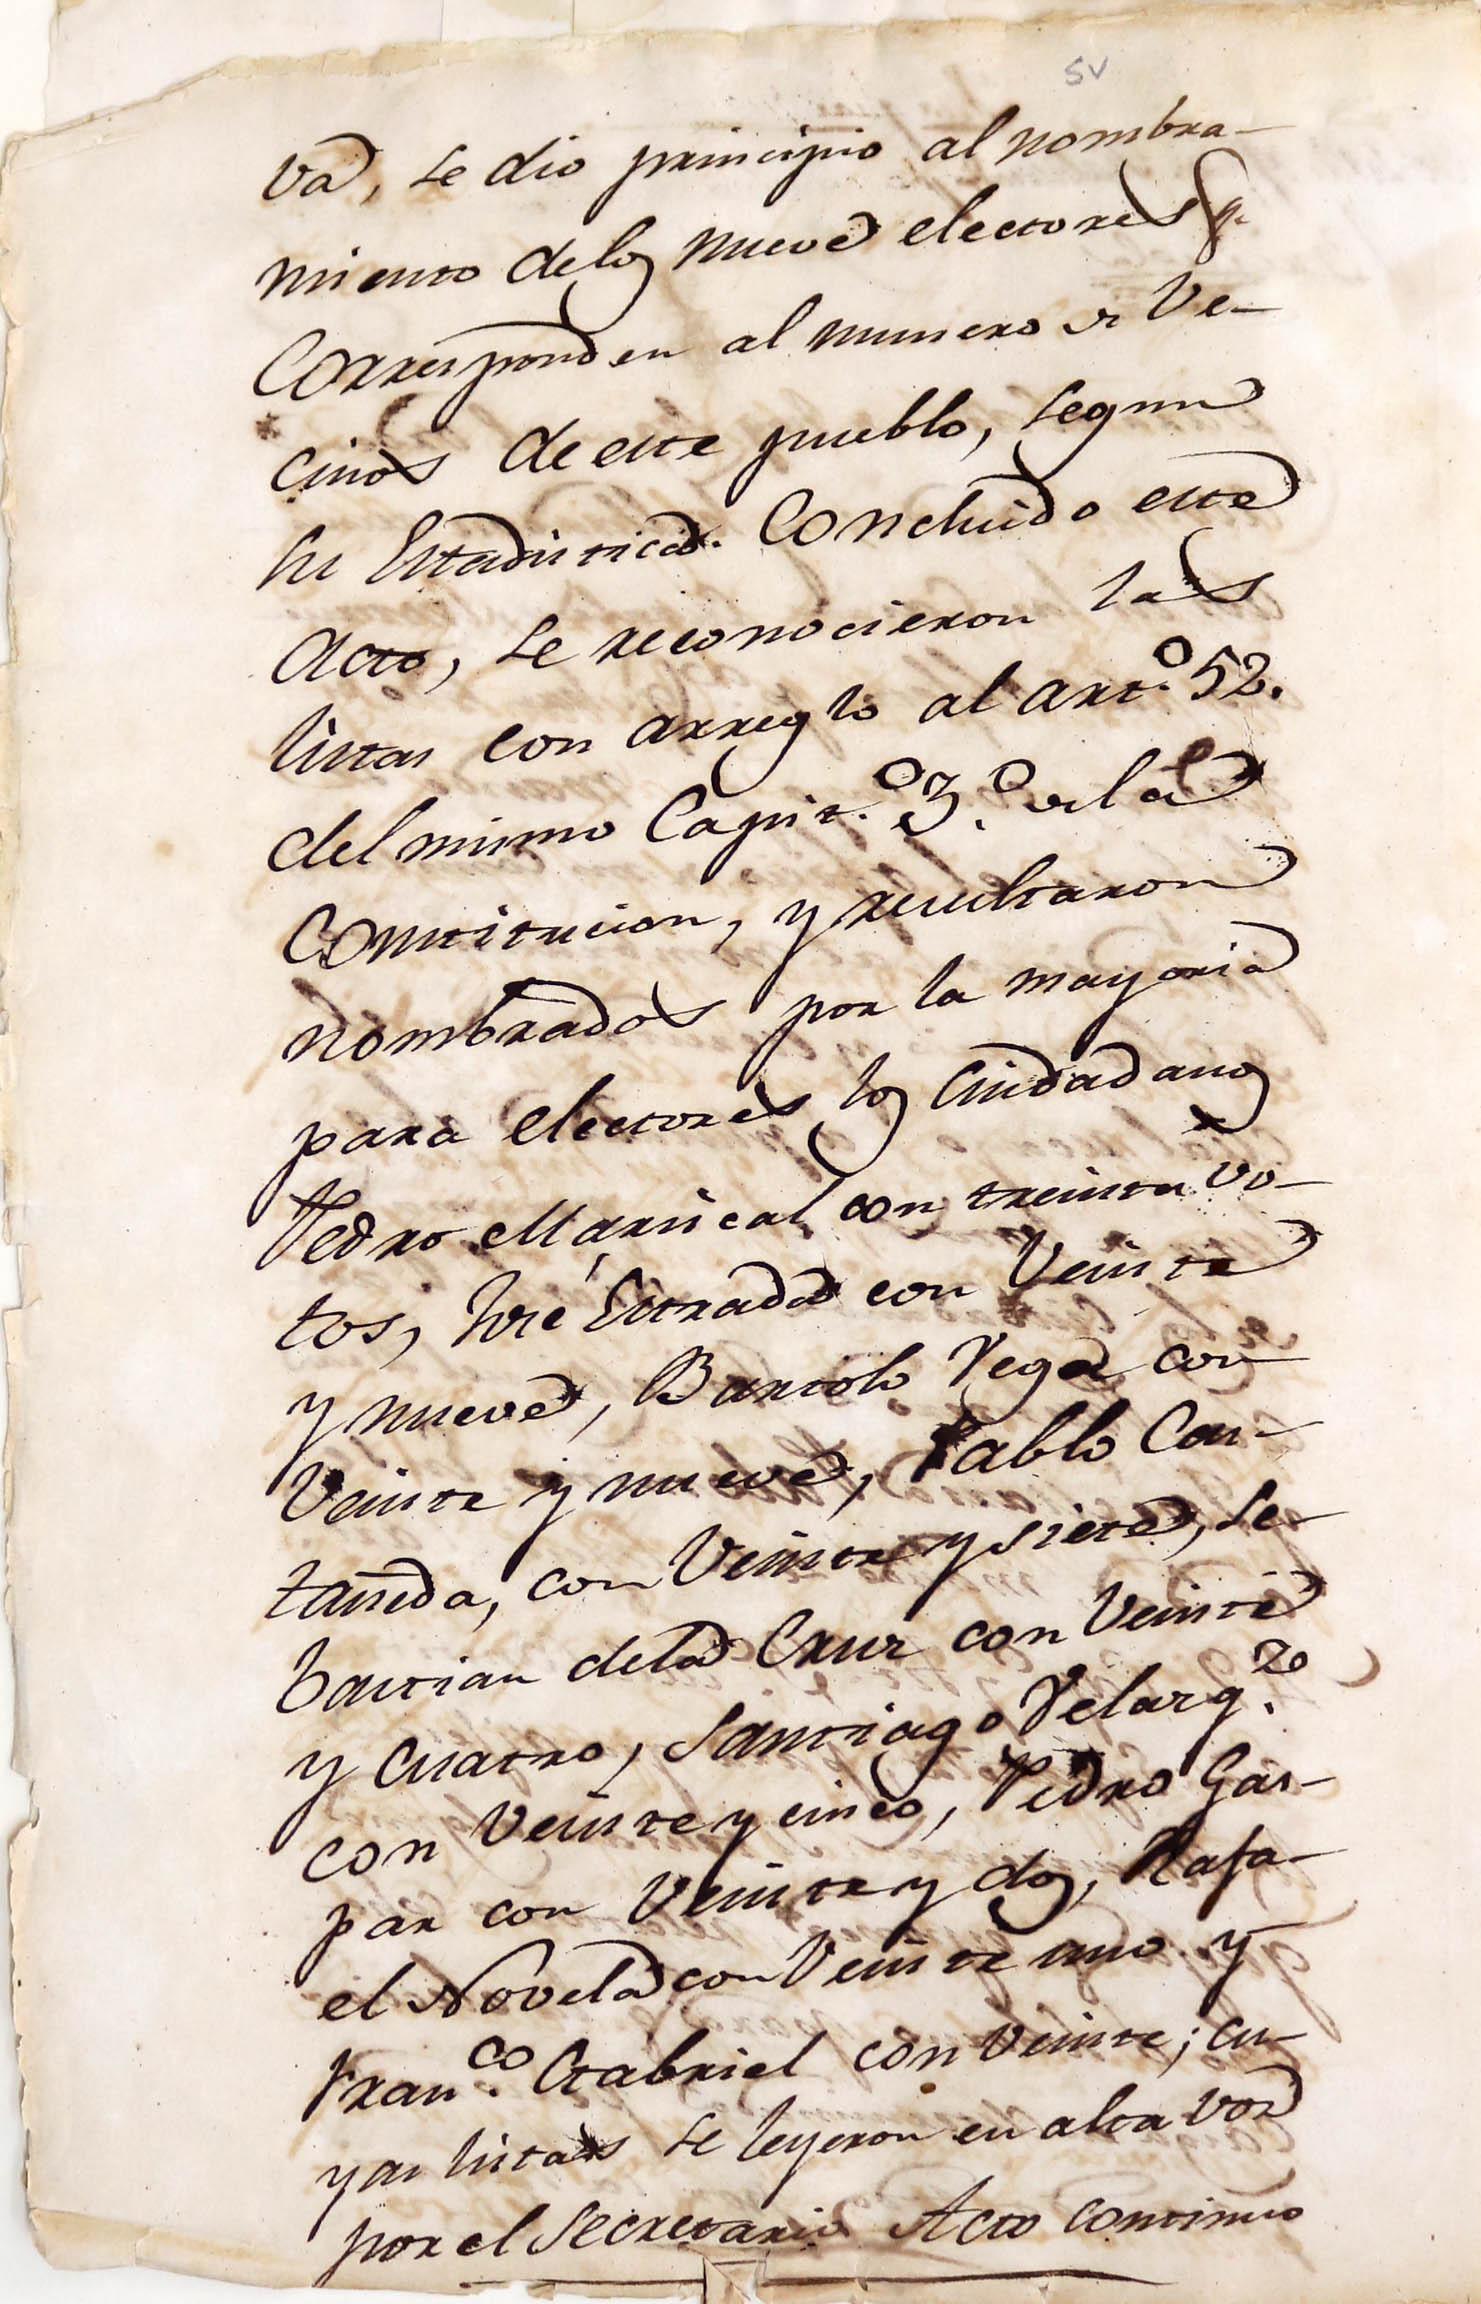 5v
va, se dio principio al nombra-
miento delos nueve electores q.
Corresponden al numero de Ve-
cinos de este pueblo, segun
su Estadistica. Concluido este
Acto, se reconocieron las
listas con arreglo al art.o 52.
del mismo Capit.o 3.o dela
Constitucion, y resultaron
nombrados por la mayoria
para electores los Ciudadanos
Pedro Mariscal con treinta vo-
tos, José Estrada con Veinte
y nueve, Bartolo Vega con
Veinte y nueve, Pablo Cas-
tañeda, con Veinte y siete, Se-
bastian dela Cruz con Veinte
y cuatro, Santiago Velazq.z
con Veinte y cinco, Pedro Gas-
par con Veinte y dos, Rafa-
el Novela con Veinte uno y
Fran.co Gabriel con Veinte; cu-
yas listas se leyeron en alta voz
por el Secretario Acto continuo